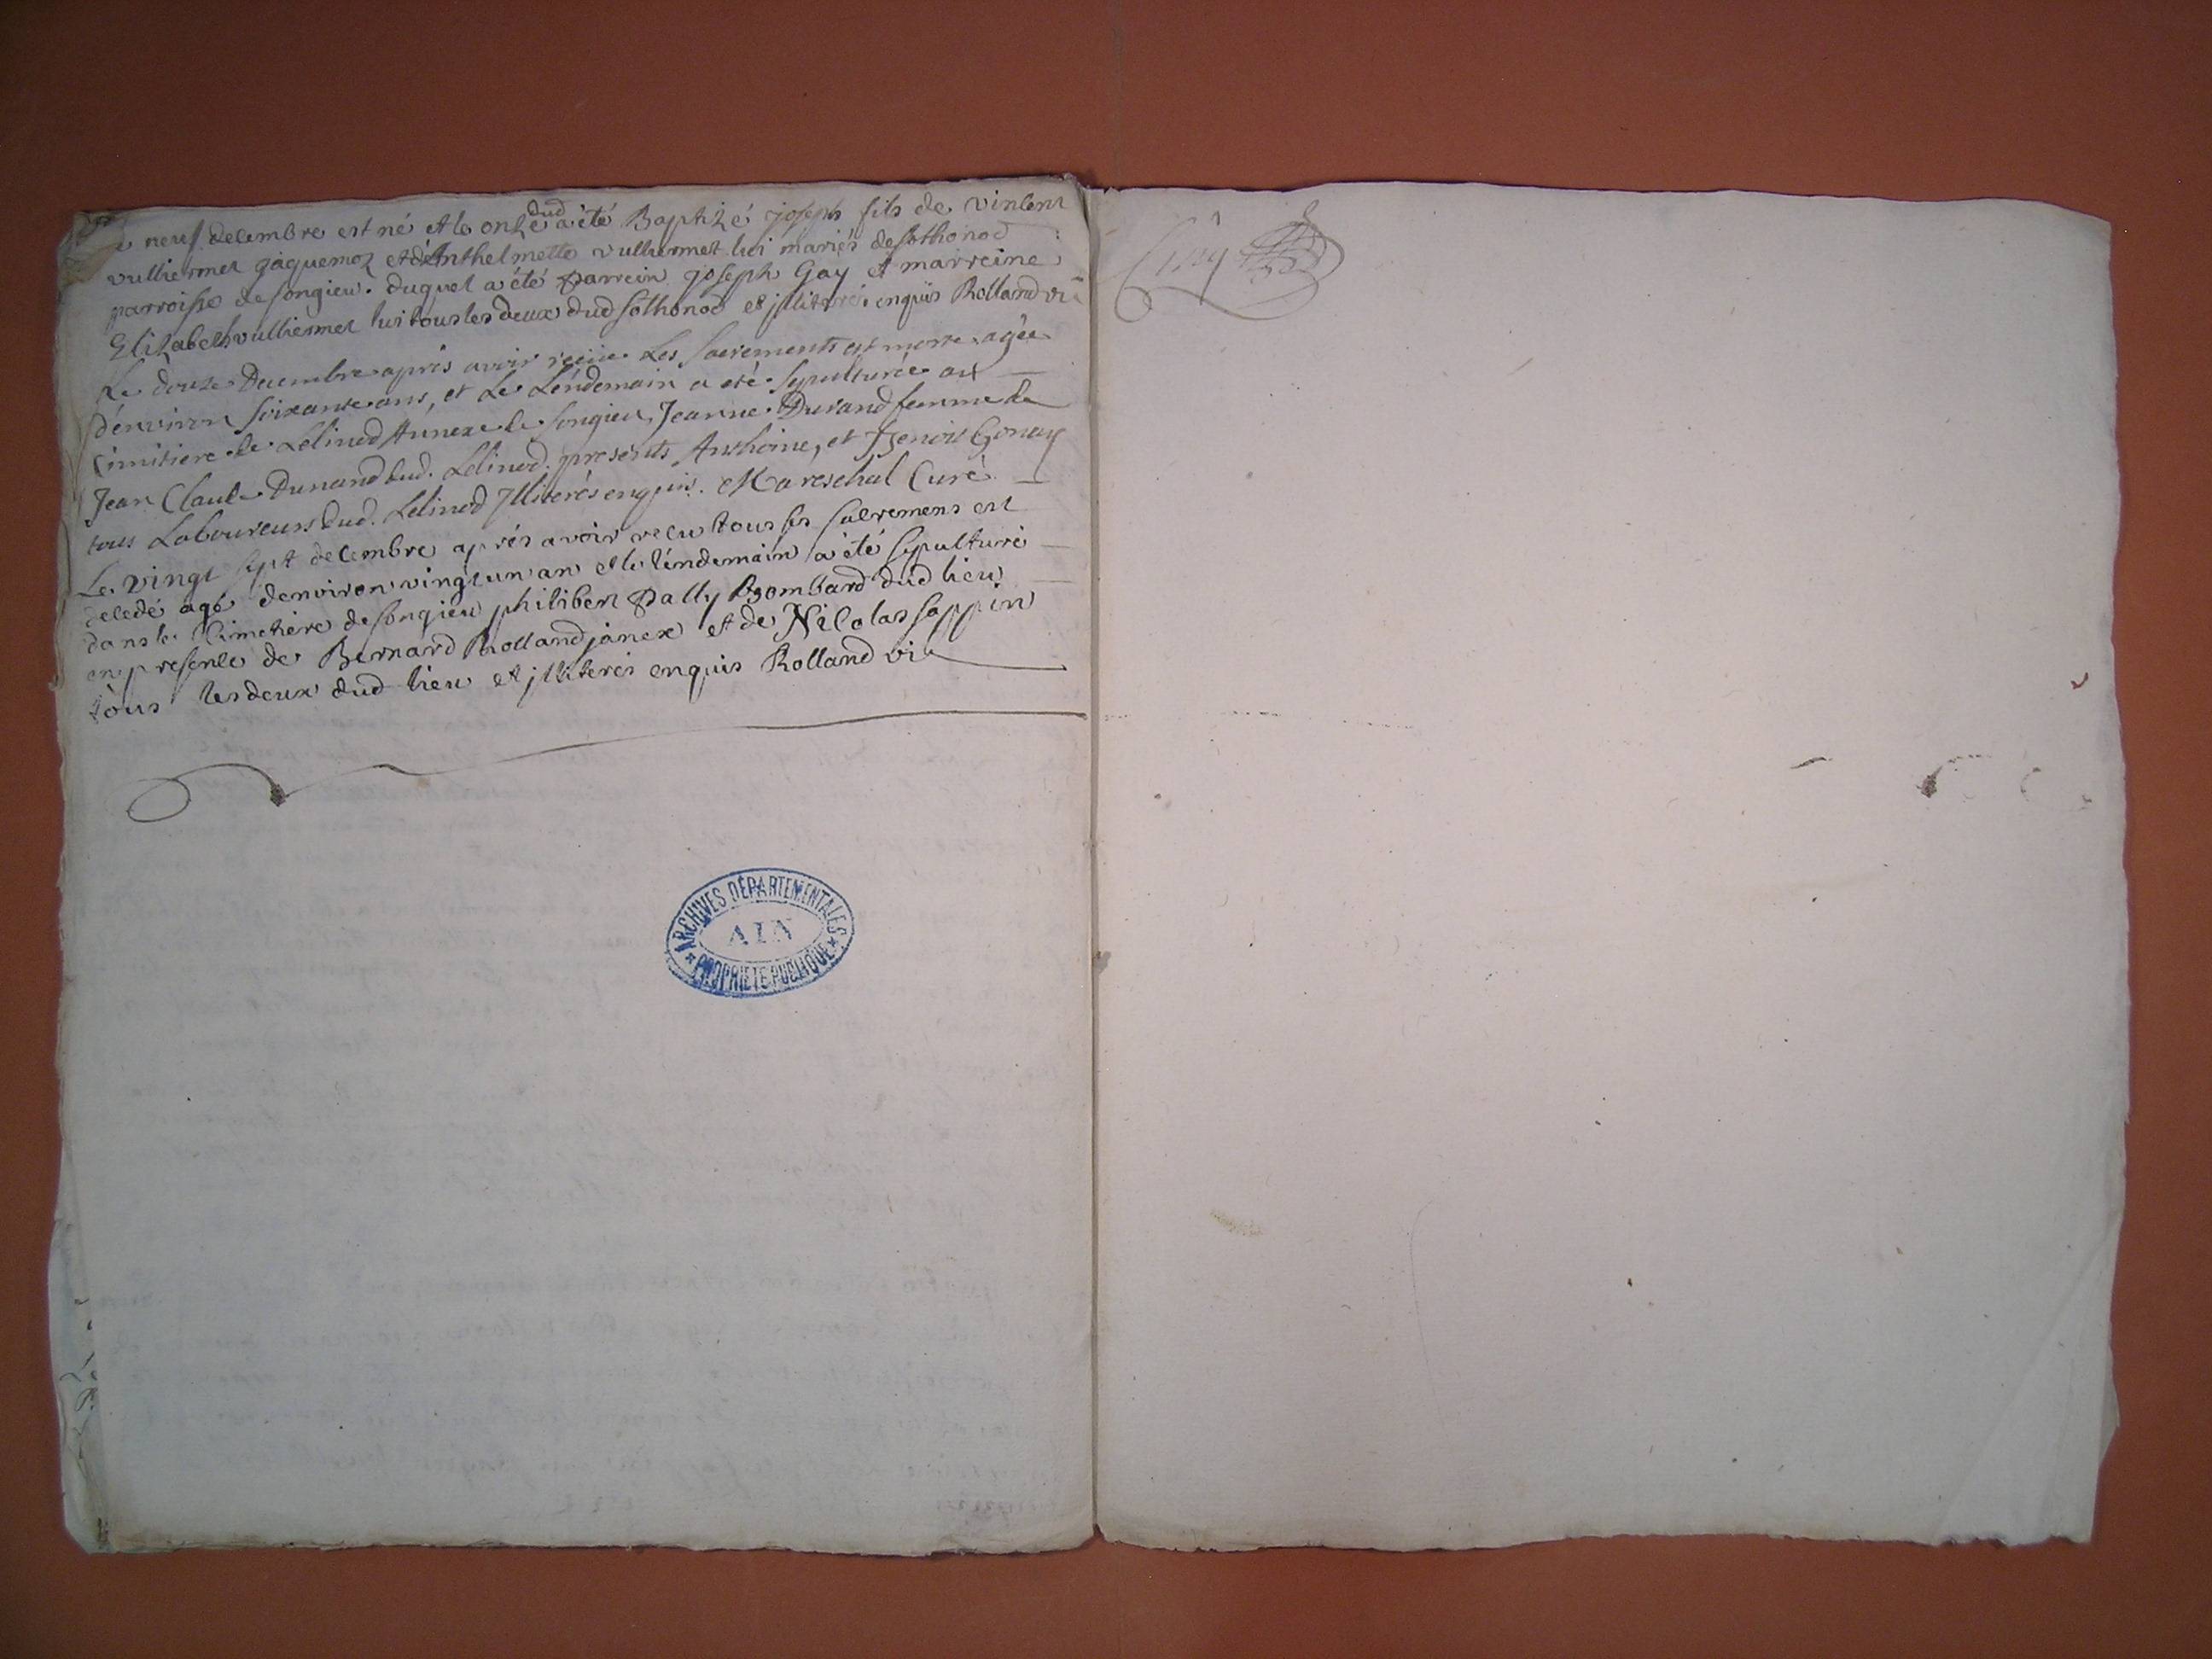 Le neuf decembre est né et le onze dud a été Baptizé joseph fils de vincent
vulliermet jaquemoz et d'Anthelmette vulliermet lui mariés de sothonod
parroisse de songieu. duquel a été parrein joseph Gay et marreine
Elizabeth vulliermet lui tous les deux dud sothonod et jlliterés enquis Rolland vic
Le douze Decembre apres avoir reçüe Les sacrements est morte agée
D'environ soixante ans, et Le Léndemain a eté sepulturée au
Cimitiere de Lilinod Annexe de songieu, Jeanne Durand femme de
Jean Claude Dunand dud. Lilinod. presents Anthoine, et Benoit Gonay
tous Laboureurs dud. Lilinod Jlliterés enquis. Mareschal Curé
Le vingt sept decembre aprés avoir recu tous ses sacremens est
decedé agé d'environ vingt un an et le lendemain a été sepulturé
dans le cimetiere de songieu philibert Pally Bombard dud lieu
en presence de Bernard Rolland janex et de Nicolas sappin
tous les deux dud lieu et jlliterés enquis Rolland vic
ARCHIVES DÉPARTEMENTALES
AIN
PROPRIETE PUBLIQUE